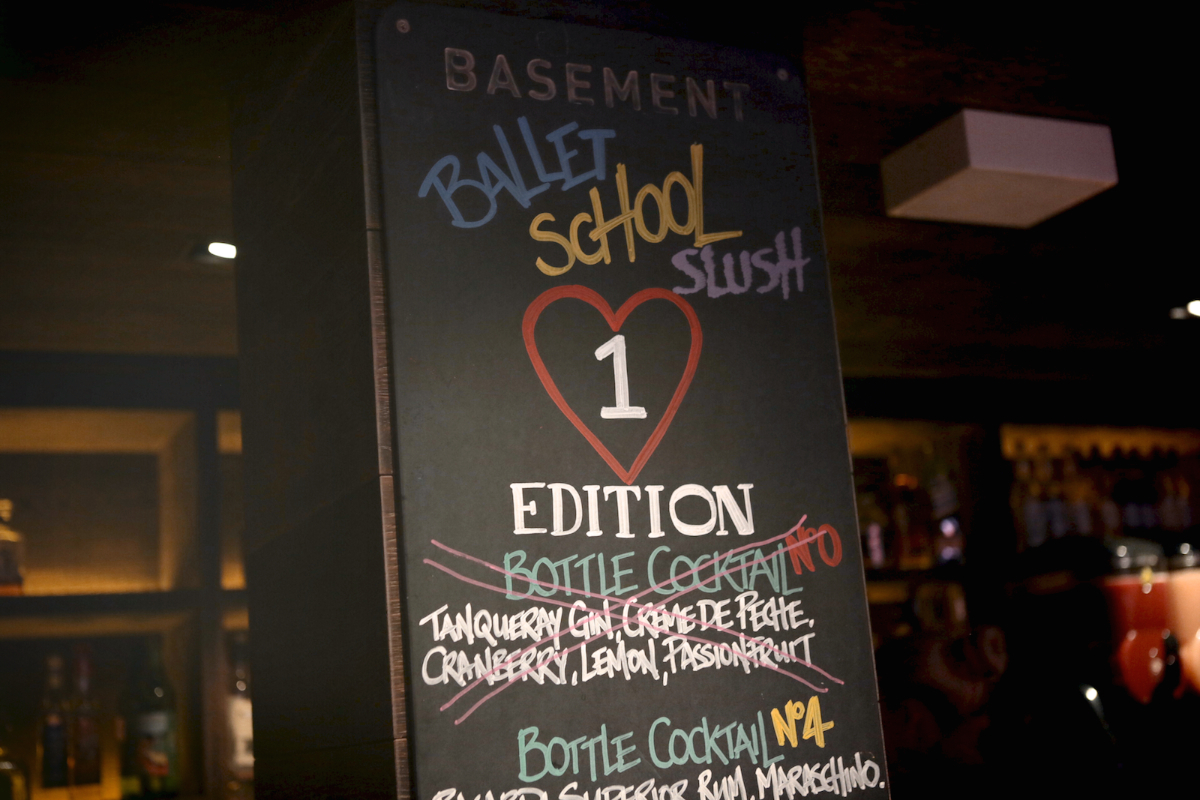 BASEMENT
BALLET
SCHOOL
SLUSH
1
EDITION
BOTTLE COCKTAIL Nº0
TANQUERAY GIN, CREME DE PECHE,
CRANBERRY, LEMON, PASSIONFRUIT
BOTTLE COCKTAIL Nº4
BACARDI SUPERIOR RUM, MARASCHINO.